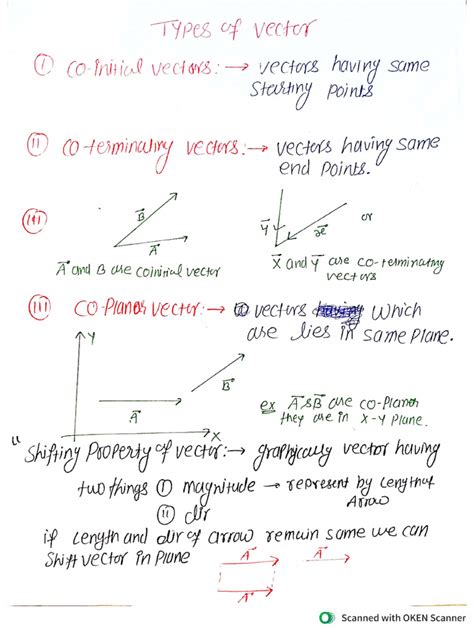 Types of vector
(i) co-initial vectors:→ vectors having same
starting points
(ii) co-terminating vectors:→ vectors having same
end points.
(iii)
B
A
A and B are coinitial vector
y
x
or
X and Y are co-terminating
vectors
(iii) CO-Planar vector:→ vectors having which
are lies in same plane.
Y
A
B
X
ex A & B are co-planar
they are in x-y plane.
"Shifting Property of vector:→ graphically vector having
two things (i) magnitude → represent by Length of
Arrow
(ii) dir
if Length and dir of arrow remain same we can
Shift vector in Plane
A
A
A
Scanned with OKEN Scanner